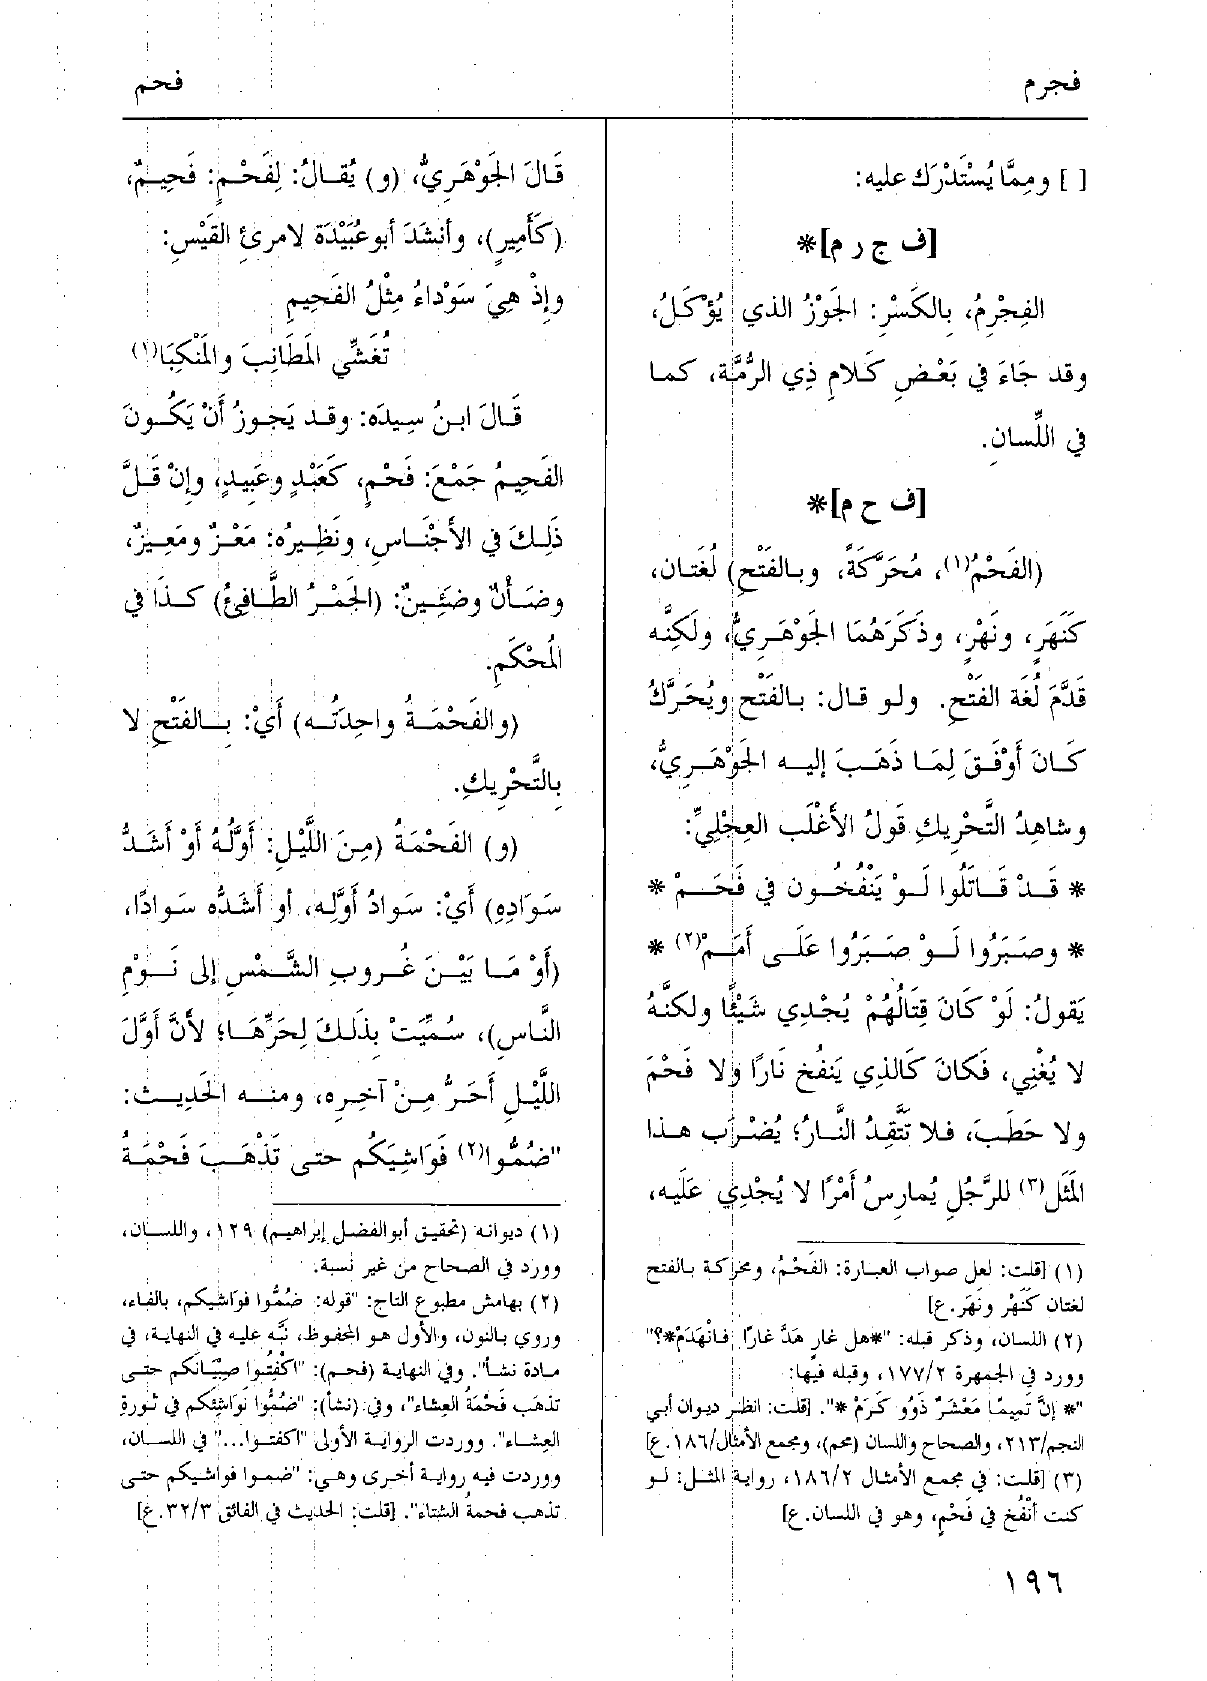 فجرم
فحم
[ ] ومِمَّا يُسْتَدْرَك عليه:
[ف ج ر م]*
الفِجْرِمُ، بِالكَسْرِ: الجَوْزُ الذي يُؤْكَلُ،
وقد جَاءَ في بَعْضِ كَلامِ ذِي الرُّمَّة، كما
في اللِّسانِ.
[ف ح م]*
(الفَحْمُ(١)، مُحَرَّكَةً، وبالفَتْحِ) لُغَتَان،
كَنَهَرٍ، ونَهْرٍ، وذَكَرَهُمَا الجَوْهَرِيُّ، ولَكِنَّه
قَدَّمَ لُغَة الفَتْحِ. ولو قال: بالفَتْحِ ويُحَرَّكُ
كَانَ أَوْفَقَ لِمَا ذَهَبَ إليه الجَوْهَرِيُّ،
وشاهِدُ التَّحْرِيكِ قَولُ الأَغْلَب العِجْلِيِّ:
* قَدْ قَاتَلُوا لَوْ يَنْفُخُون في فَحَمْ *
* وصَبَرُوا لَوْ صَبَرُوا عَلَى أَمَمْ(٢) *
يَقولُ: لَوْ كَانَ قِتَالُهُمْ يُجْدِي شَيْئًا ولكنَّهُ
لا يُغْنِي، فَكانَ كَالذِي يَنفُخ نَارًا ولا فَحْمَ
ولا حَطَبَ، فلا تَتَّقِدُ النَّارُ؛ يُضْرَب هذا
المَثَل(٣) للرَّجُلِ يُمارِسُ أَمْرًا لا يُجْدِي عَلَيه،
(١) [قلت: لعل صواب العبارة: الفَحْمُ، ومحركة بالفتح
لغتان كَنَهْر ونَهَر.ع]
(٢) اللسان، وذكر قبله: "*هل غارٍ هَدَّ غارًا فانْهَدَمْ*؟"
وورد في الجمهرة ١٧٧/٢، وقبله فيها:
"* إنَّ تَمِيمًا مَعْشَرٌ ذَوُو كَرَمْ *". [قلت: انظر ديوان أبي
النجم/٢١٣، والصحاح واللسان (محم)، ومجمع الأمثال/١٨٦.ع]
(٣) [قلت: في مجمع الأمثال ١٨٦/٢، رواية المثل: لو
كنت أنْفُخ في فَحْمٍ، وهو في اللسان.ع]
قَالَ الجَوْهَرِيُّ، (و) يُقالُ: لِفَحْمٍ: فَحِيمٌ،
(كَأَمِيرٍ)، وأنشَدَ أبو عُبَيْدَة لامرئِ القَيْسِ:
وإِذْ هِيَ سَوْدَاءُ مِثْلُ الفَحِيمِ
تُغَشِّي المَطَانِبَ والمَنْكِبَا(١)
قَالَ ابنُ سِيدَه: وقد يَجوزُ أَنْ يَكُونَ
الفَحِيمُ جَمْعَ: فَحْمٍ، كَعَبْدٍ وعَبِيدٍ، وإِنْ قَلَّ
ذَلِكَ في الأَجْنَاسِ، ونَظِيرُه: مَعْزٌ ومَعِيزٌ،
وضَأْنٌ وضَئِينٌ: (الجَمْرُ الطَّافِئُ) كذَا في
المُحْكَمِ.
(والفَحْمَةُ واحِدَتُه) أَيْ: بِالفَتْحِ لا
بِالتَّحْرِيكِ.
(و) الفَحْمَةُ (مِنَ اللَّيْلِ: أَوَّلُهُ أَوْ أَشَدُّ
سَوَادِهِ) أَيْ: سَوادُ أَوَّلِه، أو أَشَدُّه سَوادًا،
(أَوْ مَا بَيْنَ غُروبِ الشَّمْسِ إلى نَوْمِ
النَّاسِ)، سُمِّيَتْ بِذَلِكَ لِحَرِّهَا؛ لأَنَّ أَوَّلَ
اللَّيْلِ أَحَرُّ مِنْ آخِرِه، ومنه الحَدِيث:
"ضُمُّوا(٢) فَوَاشِيَكُم حتى تَذْهَبَ فَحْمَةُ
(١) ديوانه (تحقيق أبوالفضل إبراهيم) ١٢٩، واللسان،
وورد في الصحاح من غير نسبة.
(٢) بهامش مطبوع التاج: "قوله: ضُمُّوا فوَاشيكم، بالفاء،
وروي بالنون، والأول هو المحفوظ، نبَّه عليه في النهاية، في
مادة نشأ". وفي النهاية (فحم): "اكْفِتُوا صِبْيَانَكم حتى
تذهَب فَحْمَةُ العِشاء"، وفي (نشأ): "ضُمُّوا نَوَاشِئَكم في ثورةِ
العِشاء". ووردت الرواية الأولى "اكفتوا..." في اللسان،
ووردت فيه رواية أخرى وهي: "ضموا فواشيكم حتى
تذهب فحمةُ الشتاء". [قلت: الحديث في الفائق ٣٢/٣.ع]
١٩٦